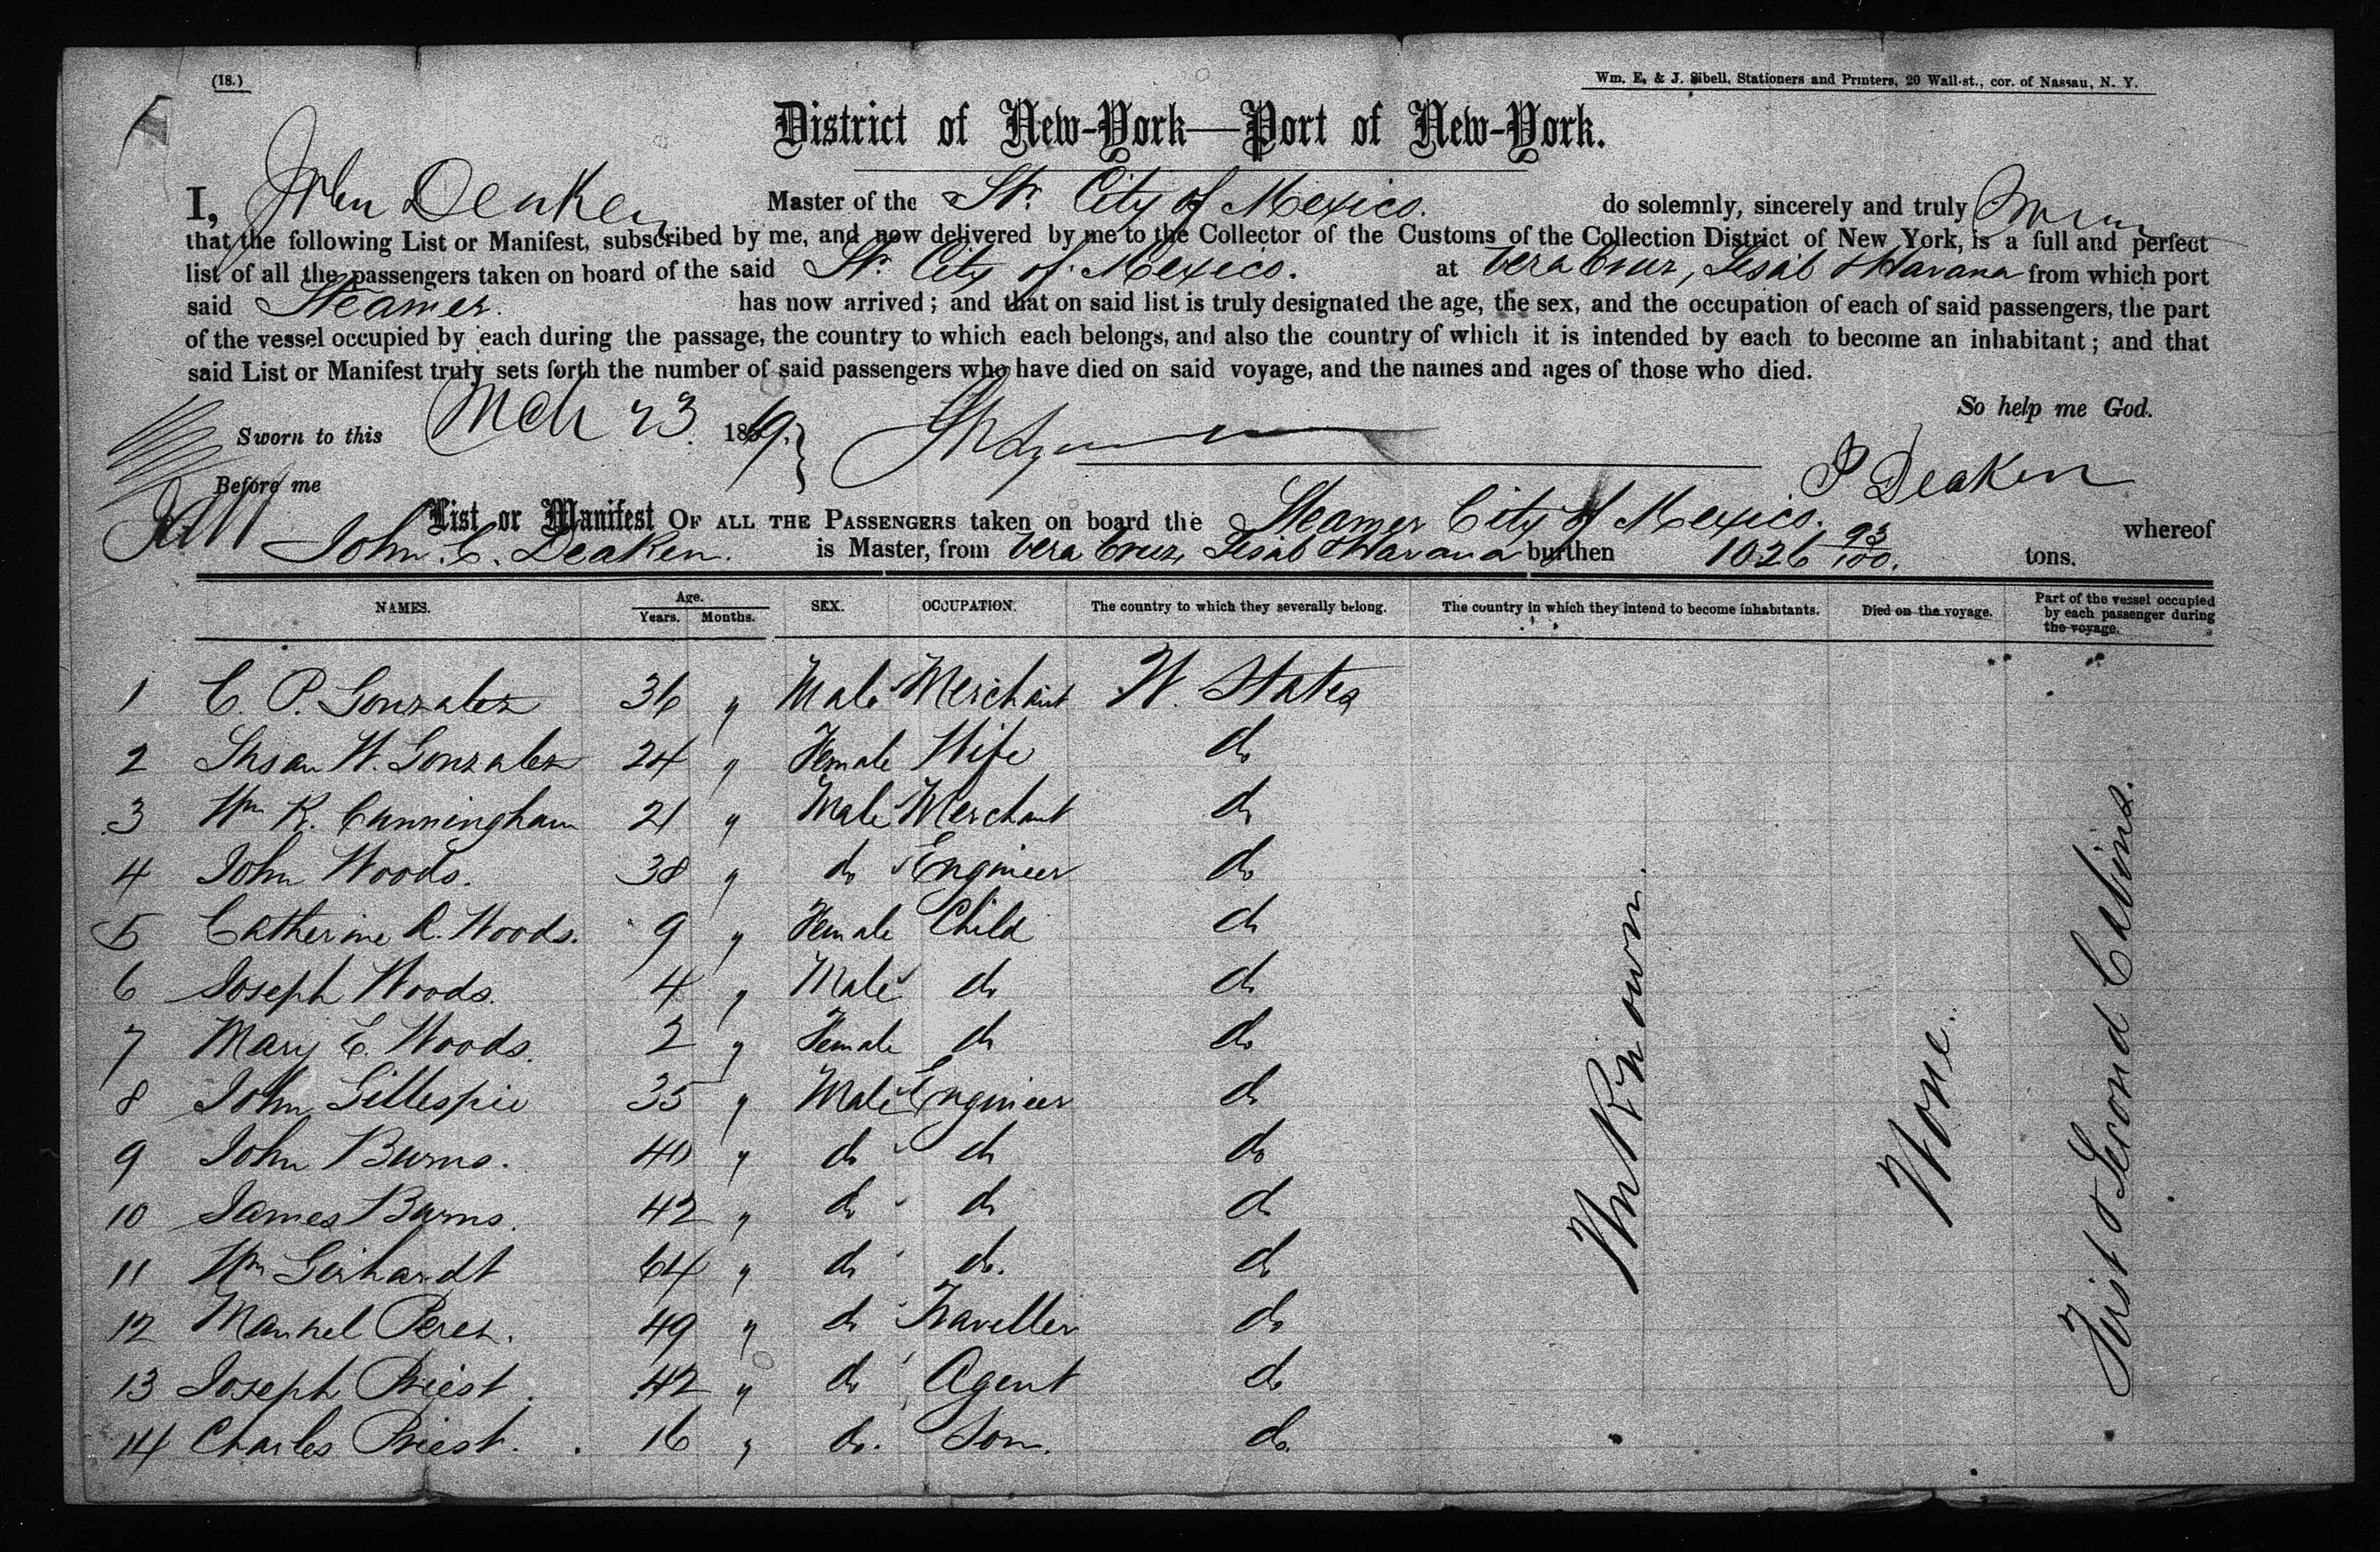 (18.)
Wm. E. & J. Sibell, Stationers and Printers, 20 Wall-st., cor. of Nassau, N. Y.
District of New-York—Port of New-York.
I, John Deaken Master of the Str. City of Mexico. do solemnly, sincerely and truly
that the following List or Manifest, subscribed by me, and now delivered by me to the Collector of the Customs of the Collection District of New York, is a full and perfect
list of all the passengers taken on board of the said Str. City of Mexico. at Vera Cruz, Sisal & Havana from which port
said Steamer. has now arrived; and that on said list is truly designated the age, the sex, and the occupation of each of said passengers, the part
of the vessel occupied by each during the passage, the country to which each belongs, and also the country of which it is intended by each to become an inhabitant; and that
said List or Manifest truly sets forth the number of said passengers who have died on said voyage, and the names and ages of those who died.
So help me God.
Sworn to this Mch 23 1869.
J Deaken
Before me
List or Manifest OF ALL THE PASSENGERS taken on board the Steamer City of Mexico. whereof
John. C. Deaken. is Master, from Vera Cruz, Sisal & Havana burthen 1026 93/100. tons.
NAMES. Age. Years. Months. SEX. OCCUPATION. The country to which they severally belong. The country in which they intend to become inhabitants. Died on the voyage. Part of the vessel occupied by each passenger during the voyage.
1 C. P. Gonzalez 36 " Male Merchant U. States
2 Susan W. Gonzalez 24 " Female Wife do
3 Wm R. Cunningham 21 " Male Merchant do
4 John Woods. 38 " do Engineer do
5 Catherine R. Woods. 9 " Female Child do
6 Joseph Woods. 4 " Male do do
7 Mary E. Woods. 2 " Female do do
8 John Gillespie 35 " Male Engineer do
9 John Burns. 40 " do do do
10 James Burns. 42 " do do do
11 Wm Gerhardt 64 " do do. do
12 Manuel Perez. 49 " do Traveller do
13 Joseph Priest. 42 " do Agent do
14 Charles Priest. 16 " do. Son. do.
Unknown.
None.
First & Second Cabins.